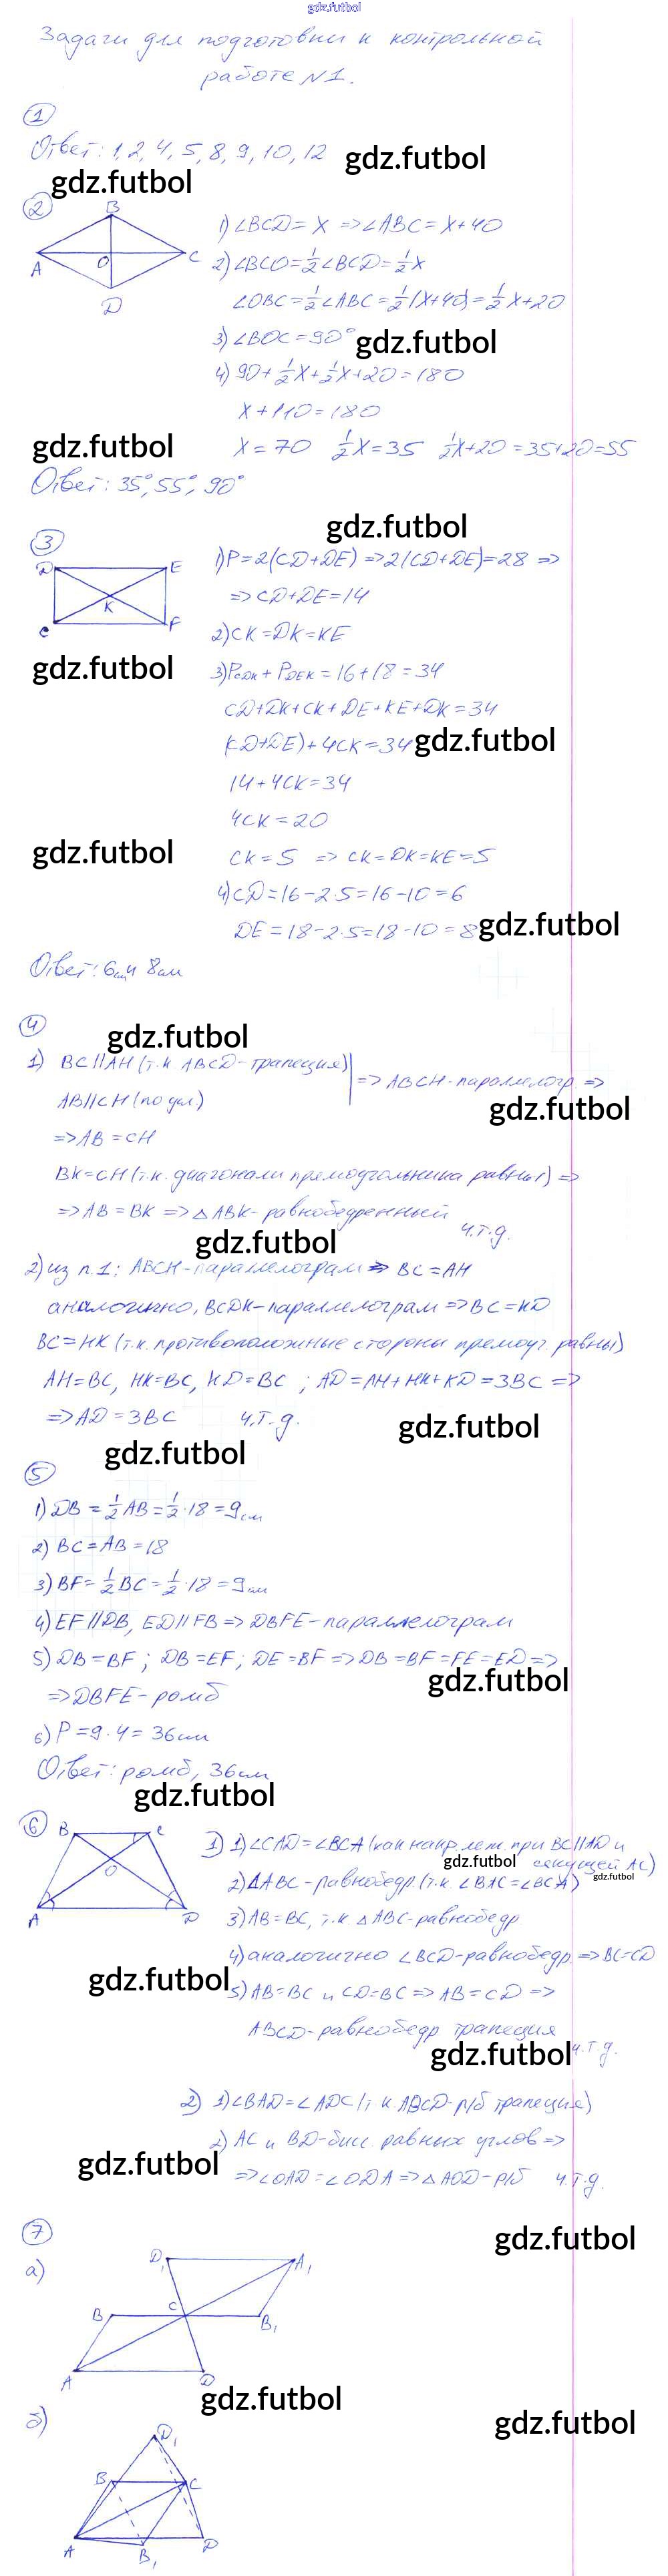 gdz.futbol
Задачи для подготовки к контрольной
работе №1.
1
Ответ: 1, 2, 4, 5, 8, 9, 10, 12
gdz.futbol
gdz.futbol
2
B
A
O
C
D
1) ∠BCD = x => ∠ABC = x+40
2) ∠BCO = 1/2 ∠BCD = 1/2 x
∠OBC = 1/2 ∠ABC = 1/2 (x+40) = 1/2 x+20
3) ∠BOC = 90°
gdz.futbol
4) 90 + 1/2 x + 1/2 x + 20 = 180
x + 110 = 180
gdz.futbol
x = 70 1/2 x = 35 1/2 x+20 = 35+20=55
Ответ: 35°, 55°, 90°
gdz.futbol
3
D
E
K
C
F
1) P = 2(CD+DE) => 2(CD+DE)=28 =>
=> CD+DE=14
2) CK = DK = KE
gdz.futbol
3) PCDK + PDEK = 16+18 = 34
CD+DK+CK+DE+KE+DK=34
(CD+DE)+4CK=34
gdz.futbol
14+4CK=34
4CK = 20
gdz.futbol
CK = 5 => CK=DK=KE=5
4) CD = 16-2·5=16-10=6
DE = 18-2·5=18-10=8
gdz.futbol
Ответ: 6см и 8см
4
gdz.futbol
1) BC||AH (т.к ABCD-трапеция)
=> ABCH-параллелогр. =>
AB||CH (по усл.)
gdz.futbol
=> AB = CH
BK=CH (т.к. диагонали прямоугольника равны) =>
=> AB = BK => △ABK-равнобедренный
ч.т.д.
gdz.futbol
2) из п.1: ABCH-параллелограм => BC=AH
аналогично, BCDK-параллелограм => BC=KD
BC=HK (т.к. противоположные стороны прямоуг. равны)
AH=BC, HK=BC, KD=BC ; AD=AH+HK+KD=3BC =>
=> AD = 3BC ч.т.д.
gdz.futbol
gdz.futbol
5
1) DB = 1/2 AB = 1/2 · 18 = 9см
2) BC = AB = 18
3) BF = 1/2 BC = 1/2 · 18 = 9см
4) EF||DB, ED||FB => DBFE-параллелограм
5) DB = BF ; DB = EF ; DE = BF => DB = BF = FE = ED =>
gdz.futbol
=> DBFE-ромб
6) P = 9·4 = 36см
Ответ: ромб, 36см
gdz.futbol
6
B
C
O
A
D
1) 1) ∠CAD = ∠BCA (как накр. леж. при BC||AD и
секущей AC)
gdz.futbol
gdz.futbol
2) △ABC-равнобедр (т.к. ∠BAC=∠BCA)
3) AB=BC, т.к △ABC-равнобедр
4) аналогично ∠BCD-равнобедр => BC=CD
gdz.futbol
5) AB=BC и CD=BC => AB=CD =>
ABCD-равнобедр трапеция
gdz.futbol
ч.т.д.
2) 1) ∠BAD = ∠ADC (т.к. ABCD-р/б трапеция)
2) AC и BD-бис. равных углов =>
gdz.futbol
=> ∠OAD = ∠ODA => △AOD-р/б ч.т.д.
7
gdz.futbol
а)
D1
A1
B
C
B1
A
D
gdz.futbol
б)
gdz.futbol
D1
B
C
A
B1
D